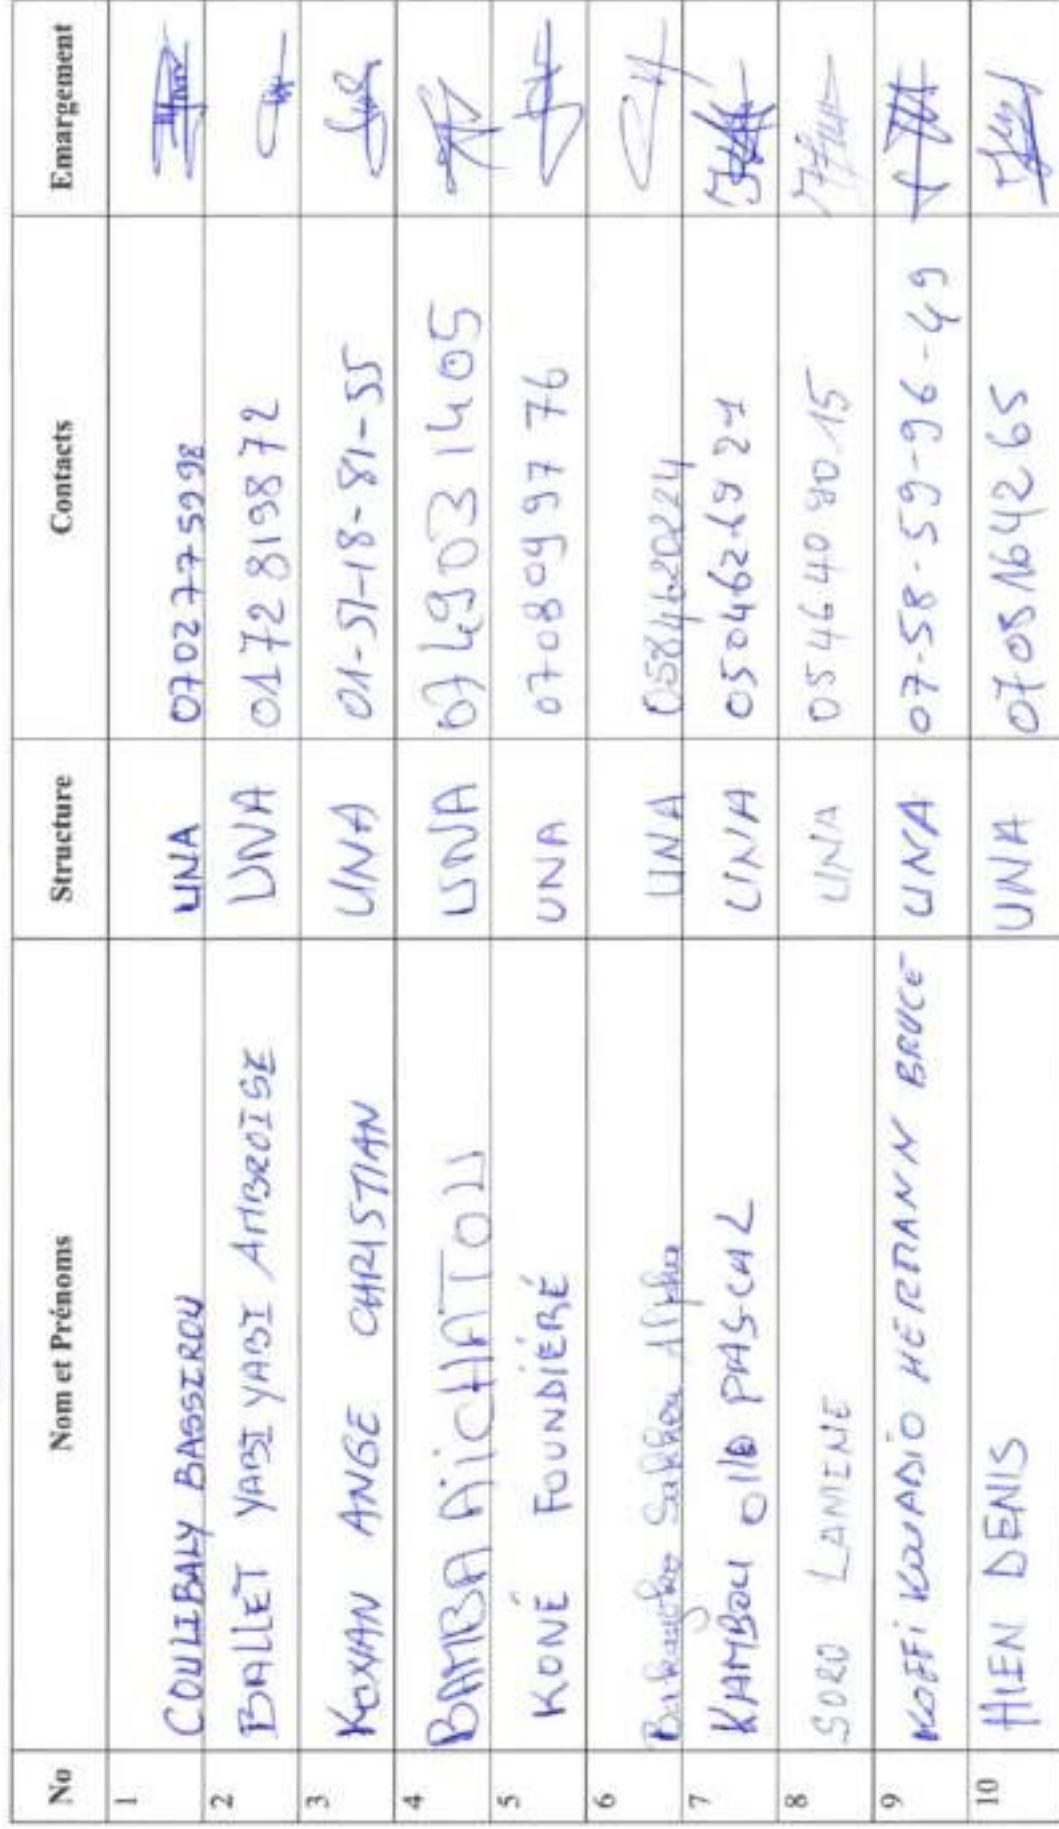 No Nom et Prénoms Structure Contacts Emargement
1 COULIBALY BASSIROU UNA 0702775998
2 BALLET YABI YABI AMBROISE UNA 0172819872
3 KOUAN ANGE CHRISTIAN UNA 01-51-18-81-55
4 BAMBA AiCHATOU UNA 0749031405
5 KONÉ FOUNDIÉRÉ UNA 0708099776
6 UNA 0584620224
7 KAMBOU OllO PASCAL UNA 0504626921
8 SORO LAMINE UNA 0546409015
9 KOFFI KOUADIO HERMANN BRUCE UNA 07-58-59-96-49
10 HIEN DENIS UNA 0705164265